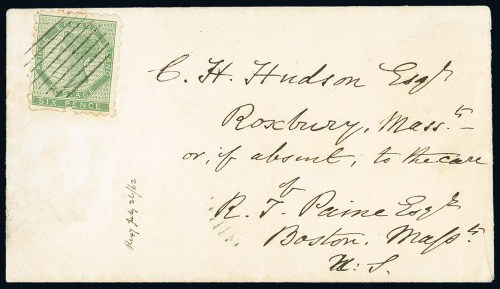 SIX PENCE
C. H. Hudson Esqr
Roxbury, Massts
or, if absent, to the care
of
R. T. Paine Esqr
Boston, Massts
U. S.
July 26/62